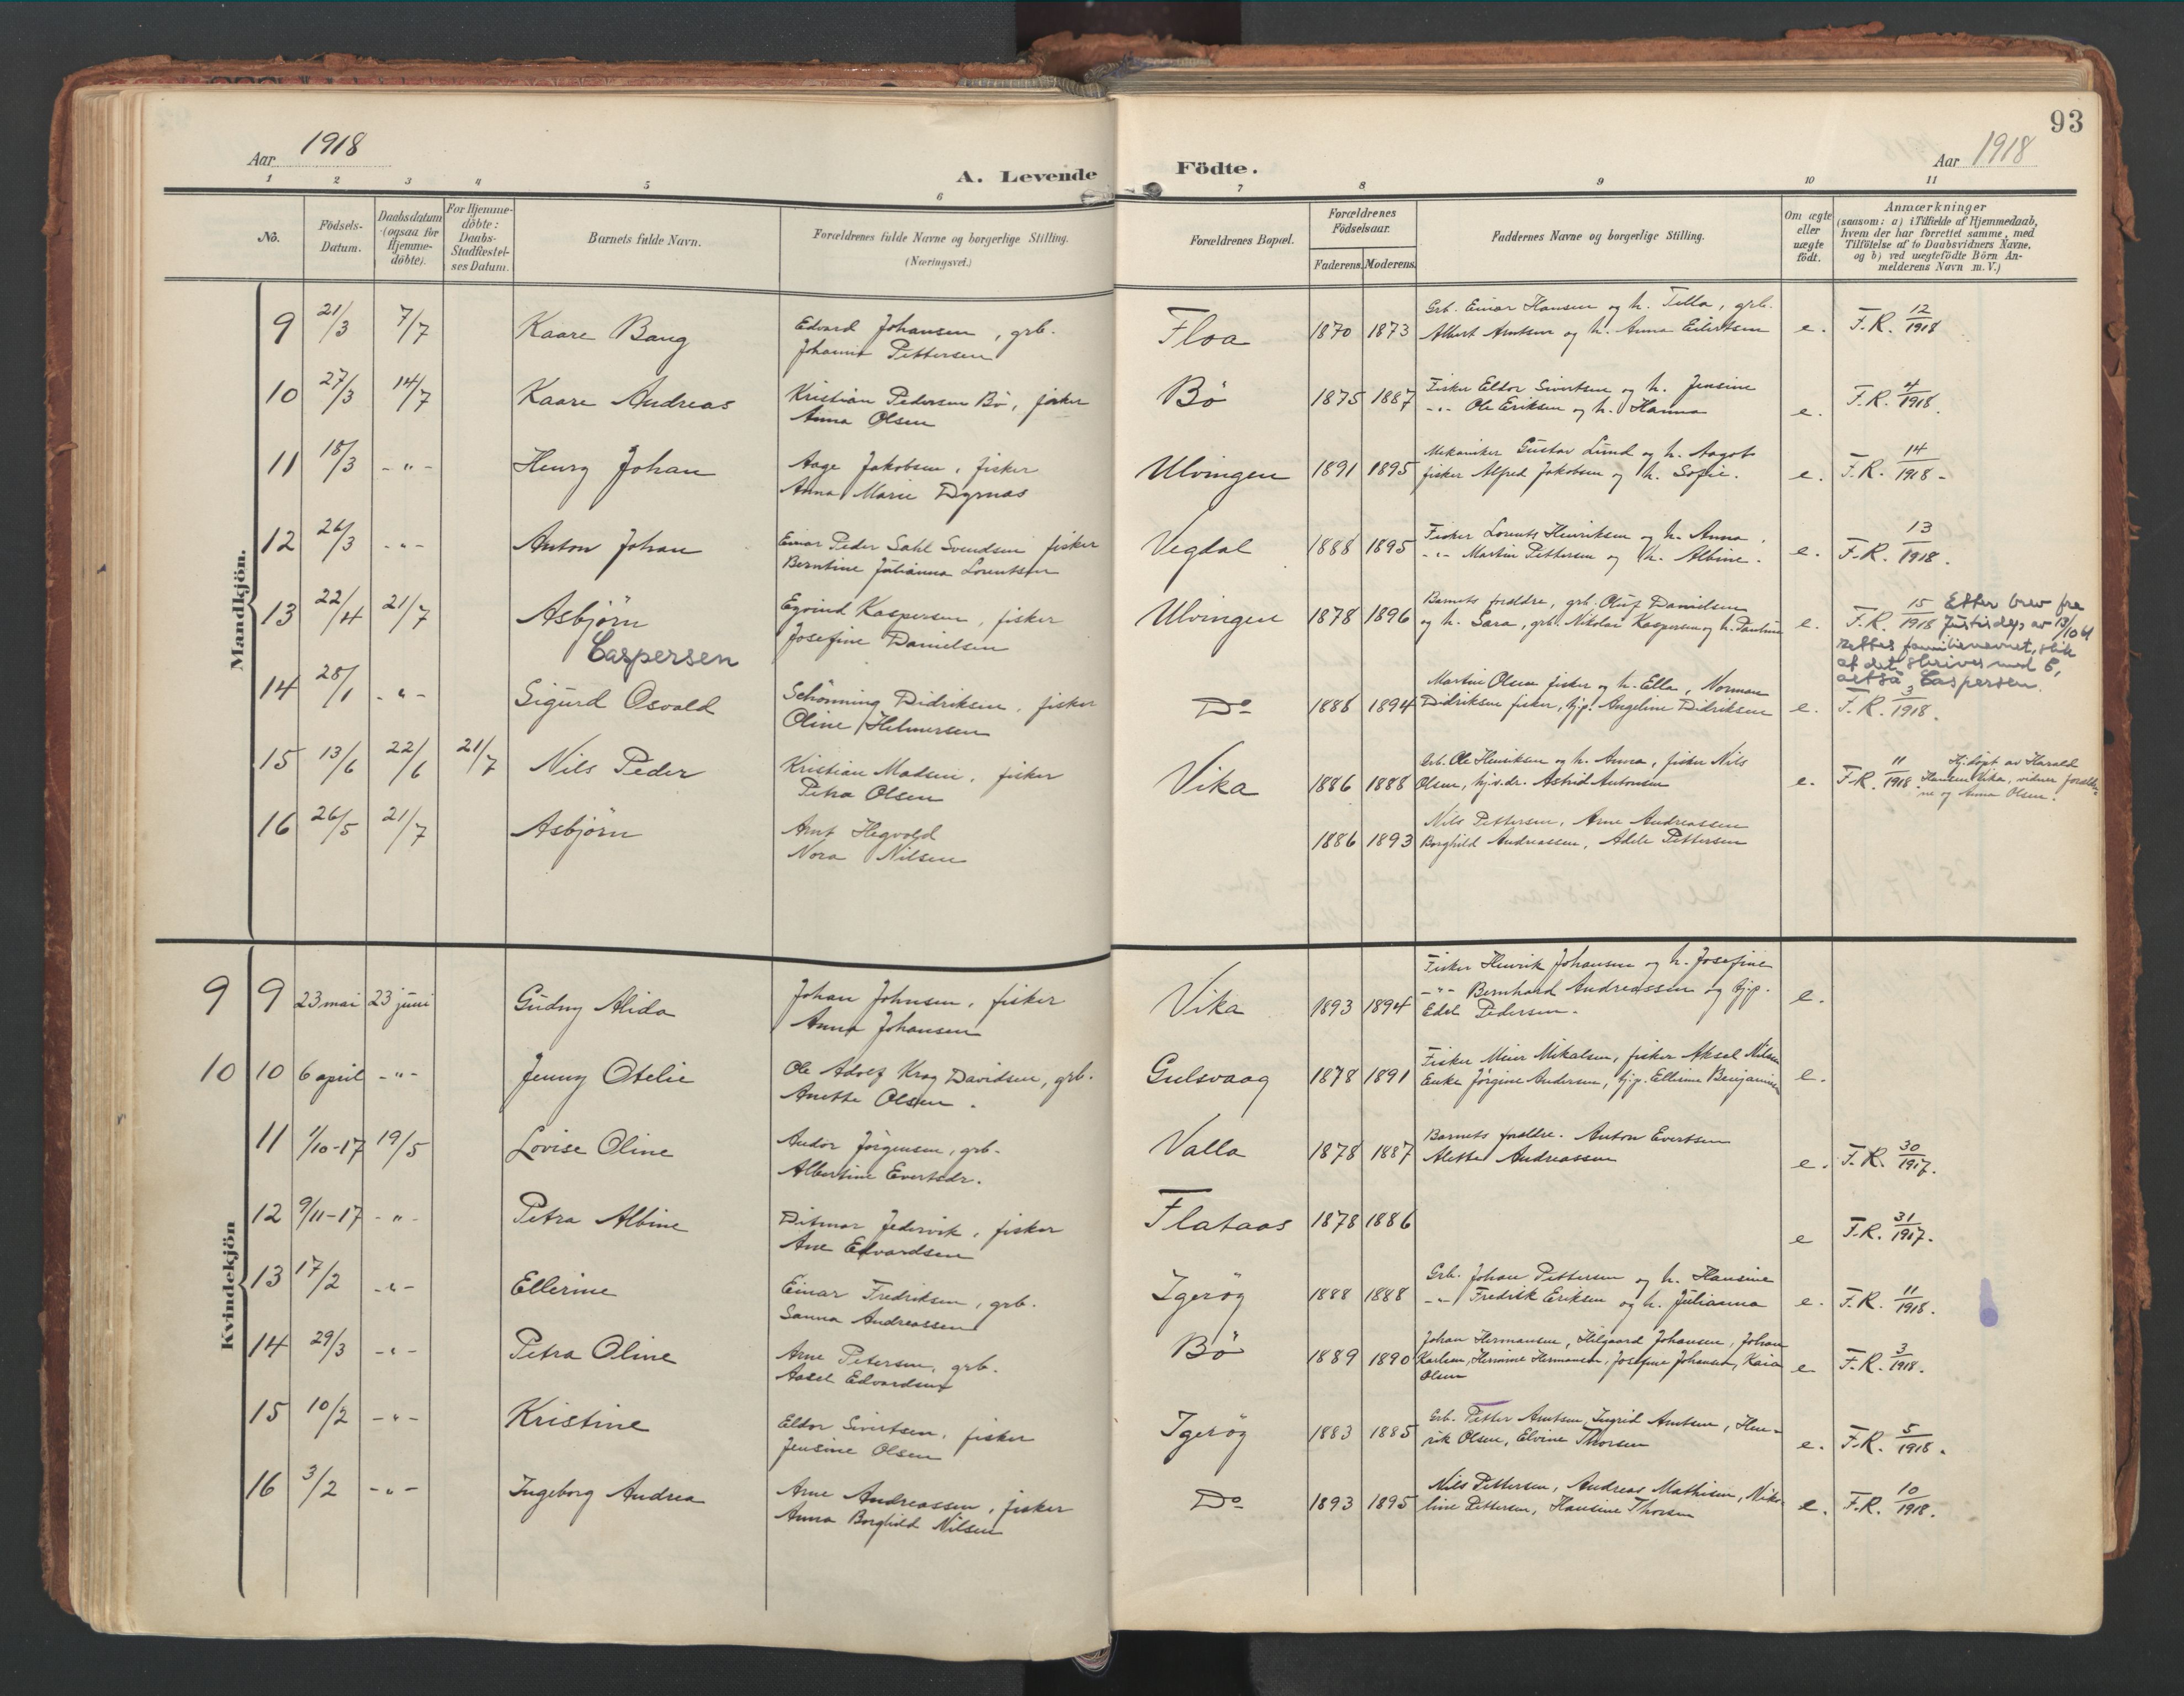 93
Aar 1918
A. Levende Födte.
Aar 1918
1 2 3 4 5 6 7 8 9 10 11
No.
Födsels-Datum.
Daabsdatum (ogsaa for Hjemme-döbte).
For Hjemme-döbte: Daabs-Stadfæstel-ses Datum.
Barnets fulde Navn.
Forældrenes fulde Navne og borgerlige Stilling. (Næringsvei.)
Forældrenes Bopæl.
Forældrenes Födselsaar.
Faderens. Moderens.
Faddernes Navne og borgerlige Stilling.
Om ægte eller uægte födt.
Anmærkninger
(saasom: a) i Tilfælde af Hjemmedaab,
hvem der har forrettet samme, med
Tilföielse af to Daabsvidners Navne,
og b) ved uægtefödte Börn An-
melderens Navn m. V.)
Mandkjön.
9 21/3 7/7 Kaare Bang
Edvard Johansen, grb.
Pettersen
Floa 1870 1873
Grb. Einar Hansen og h. Tella, grb.
Albert Arntsen og h. Anna Eilertsen
e. F.R. 12/1918
10 27/3 14/7 Kaare Andreas
Kristian Pedersen Bö, fisker
Anna Olsen
Bö 1875 1887
Fisker Eldor Sivertsen og h. Jensine
-"- Ole Eriksen og h. Hanna
e. F.R. 4/1918.
11 18/3 -"- Henry Johan
Aage Jakobsen, fisker
Anna Marie Dyrnas
Ulvingen 1891 1895
Mekaniker Gustav Lund og h. Aagot
fisker Alfred Jakobsen og h. Sofie.
e. F.R. 14/1918 -
12 26/3 -"- Anton Johan
Einar Peder Sahl Svendsen fisker
Berntine Julianna Lorentsen
Vegdal 1888 1895
Fisker Lorents Henriksen og h. Anna.
-"- Martin Pettersen og h. Albine.
e. F.R. 13/1918.
13 22/4 21/7 Asbjörn
Caspersen
Eyvind Kaspersen, fisker
Josefine Danielsen
Ulvingen 1878 1896
Barnets foraldre, grb. Oluf Danielsen
og h. Sara, grb. Nikolai Kaspersen og h. Pauline
e. F.R. 15/1918 Etter brev fra
Justisdep av 13/10 61
rettes familienavnet, slik
at det skrives med C,
altså Caspersen.
14 28/1 -"- Sigurd Osvald
Schönning Didriksen, fisker
Oline Helmersen
Do 1886 1894
Martin Olsen fisker og h. Ella, Norman
Didriksen fisker, tjp. Angeline Didriksen
e. F.R. 3/1918.
15 13/6 22/6 21/7 Nils Peder
Kristian Madsen, fisker
Petra Olsen
Vika 1886 1888
Grb. Ole Henriksen og h. Anna, fisker Nils
Olsen, Astrid Antonsen
e. F.R. 11/1918. Hj.döpt av Harald
Hansen Vika, vidner foraldre-
ne og Anna Olsen.
16 26/5 21/7 Asbjörn
Arnt Hegvold
Nora Nilsen
1886 1893
Nils Pettersen, Arne Andreassen
Borghild Andreassen, Adele Pettersen
Kvindekjön
9 9 23 mai 23 juni Gudny Alida
Johan Johnsen, fisker
Anna Johansen
Vika 1893 1894
Fisker Henrik Johansen og h. Josefine
-"- Bernhard Andreassen og tjp.
Edel Pedersen.
e.
10 10 6 april -"- Jenny Otelie
Ole Adolf Krog Davidsen, grb.
Anette Olsen.
Gulsvaag 1878 1891
Fisker Meier Mikalsen, fisker Aksel Nilsen
Enke Jörgine Andersen, tjp. Ellerine Benjaminsen
e.
11 1/10-17 19/5 Lovise Oline
Andor Jörgensen, grb.
Albertine Evertsdr.
Valla 1878 1887
Barnets foraldre. Anton Evertsen
Alette Andreassen
e. F.R. 30/1917.
12 9/11-17 -"- Petra Albine
Ditmar Jedervik, fisker
Ane Edvardsen
Flataas 1878 1886
e F.R. 31/1917.
13 17/2 -"- Ellerine
Einar Fredriksen, grb.
Sanna Andreassen
Igeröy 1888 1888
Grb. Johan Pettersen og h. Hansine
-"- Fredrik Eriksen og h. Julianna
e. F.R. 11/1918.
14 29/3 -"- Petra Oline
Arne Petersen, grb.
Aasel Edvardsen
Bö 1889 1890
Johan Hermansen, Hilgaard Johansen, Johan
Karlsen, Hermine Hermansen, Josefine Johansen, Kaia
Olsen
e F.R. 3/1918.
15 10/2 -"- Kristine
Eldor Sivertsen, fisker
Jensine Olsen
Igeröy 1883 1885
Grb. Petter Arntsen, Ingrid Arntsen, Hen-
rik Olsen, Elvine Thorsen
e. F.R. 5/1918.
16 3/2 -"- Ingeborg Andrea
Arne Andreassen, fisker
Anna Borghild Nilsen
Do 1893 1895
Nils Pettersen, Andreas Mathisen, Niko-
line Pettersen, Hansine Thorsen
e. F.R. 10/1918.